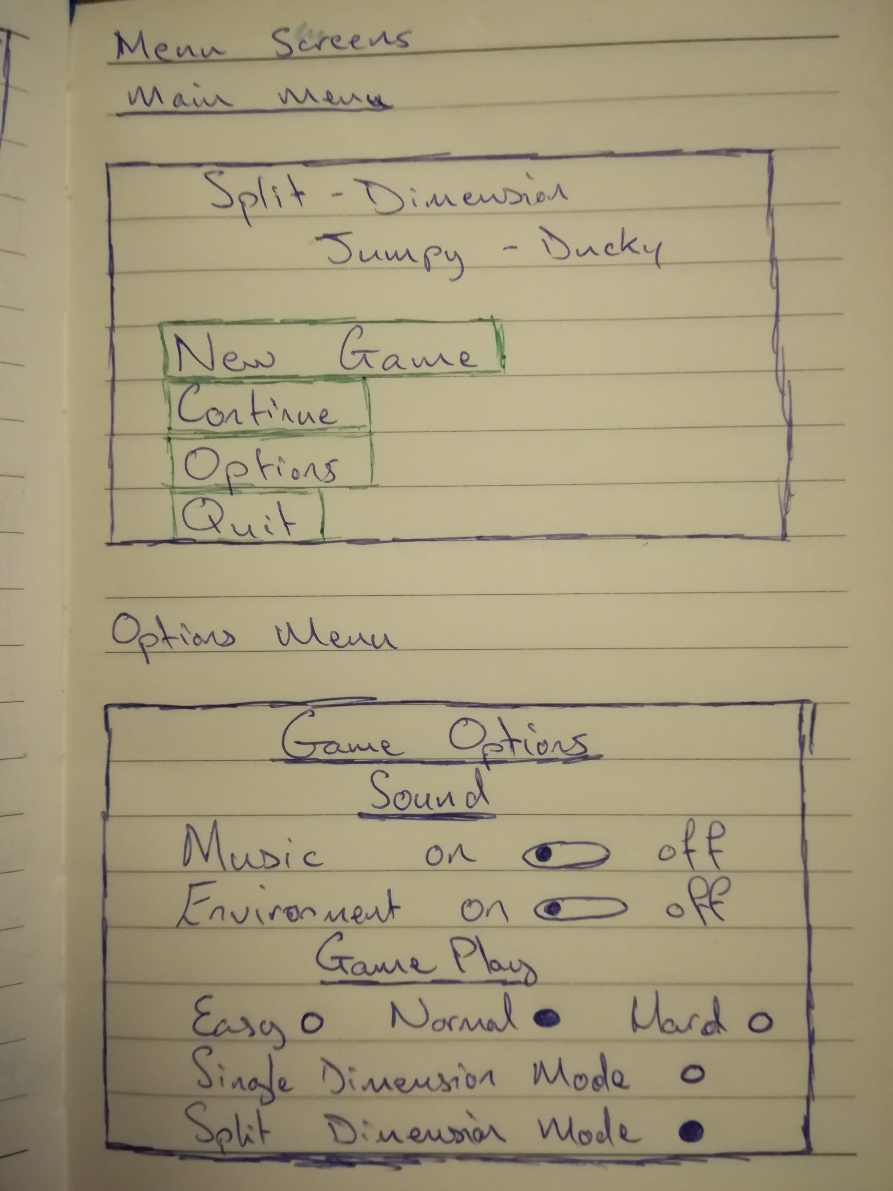 Menu Screens
Main Menu
Split - Dimension
Jumpy - Ducky
New Game
Continue
Options
Quit
Options Menu
Game Options
Sound
Music on off
Environment on off
Game Play
Easy Normal Hard
Single Dimension Mode
Split Dimension Mode